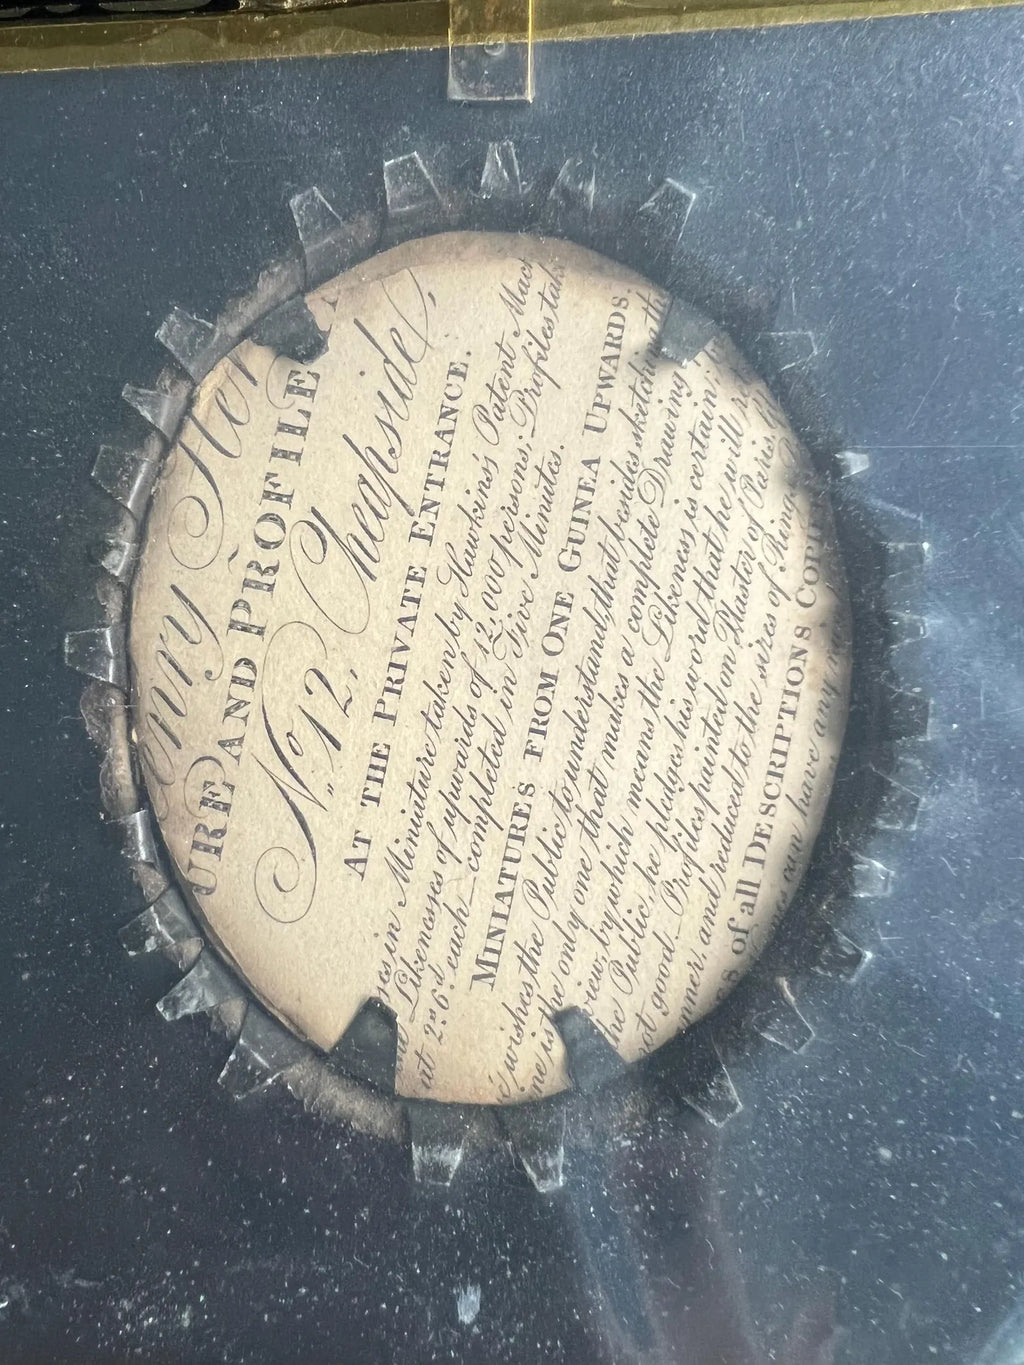 enry
URE AND PROFILE
No. 12. Cheapside,
AT THE PRIVATE ENTRANCE.
in Miniature taken by Hawkins's Patent
Likenesses of upwards of 12,000 persons; Profiles
at 2s. 6d. each completed in Five Minutes.
MINIATURES FROM ONE GUINEA UPWARDS.
wishes the Public to understand, that besides sketching the
is the only one that makes a complete Drawing
view, by which means the Likeness is certain;
the Public, he pledges his word that he will
not good. Profiles painted on Plaster of Paris,
and reduced to the sizes of Rings
of all DESCRIPTIONS
can have any